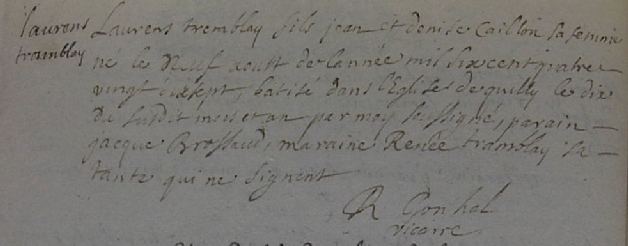 laurens
tramblay
Laurens tremblay fils jean et denise Caillon sa femme
ne le neuf aoust de lannée mil six cent quatre
vingt dixsept, batisé dans lEglise de quilly le dix
du susdit mois et an par moy soussigné, parain
jacque Brossaud, maraine Renée tramblay sa
tante qui ne signent
R Gonhel
vicaire